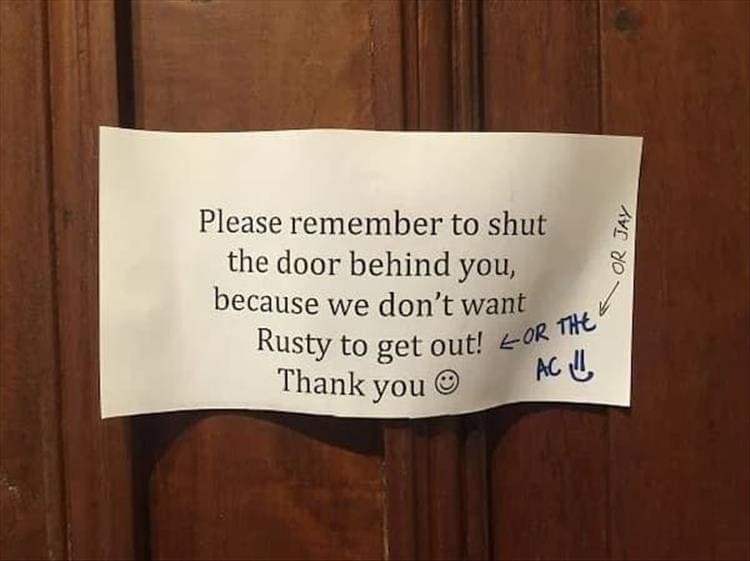 Please remember to shut
the door behind you,
because we don't want
Rusty to get out! ← OR THE
AC
Thank you ☺
← OR JAY